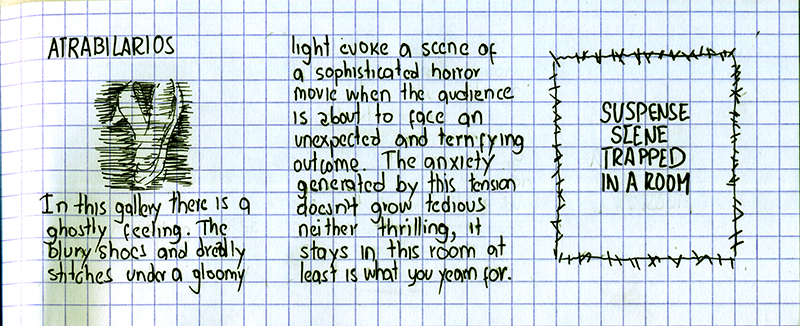 ATRABILARIOS
In this gallery there is a
ghostly feeling. The
blury shoes and dredly
stitches under a gloomy
light evoke a scene of
a sophisticated horror
movie when the audience
is about to face an
unexpected and terrifying
outcome. The anxiety
generated by this tension
doesn't grow tedious
neither thrilling, it
stays in this room at
least is what you yearn for.
SUSPENSE
SCENE
TRAPPED
IN A ROOM